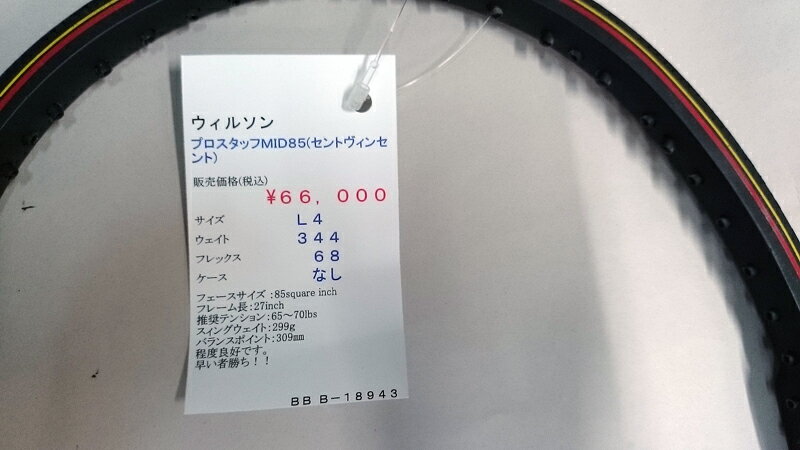 ウィルソン
プロスタッフMID85(セントヴィンセ
ント)
販売価格(税込)
¥66,000
サイズ L4
ウェイト 344
フレックス 68
ケース なし
フェースサイズ:85square inch
フレーム長:27inch
推奨テンション:65～70lbs
スイングウェイト:299g
バランスポイント:309mm
程度良好です。
早い者勝ち!!
BB B-18943